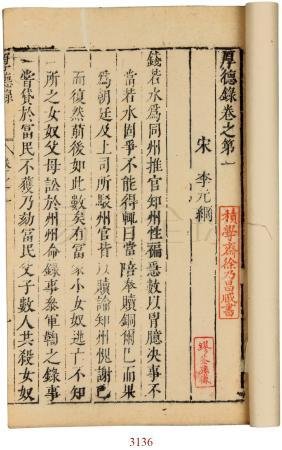 厚德錄卷之第一
宋 李元綱
積學齋徐乃昌藏書
錢若水為同州推官知州性褊急數以胷臆決事不
當若水固爭不能得輒曰當陪奉贖銅爾已而果
為朝廷及上司所駁州官皆以贖論知州愧謝已
而復然前後如此數矣有富家小女奴逃亡不知
所之女奴父母訟於州州命錄事參軍鞫之錄事
嘗貸於富民不獲乃劾富民父子數人共殺女奴
厚德錄
卷之一
3136